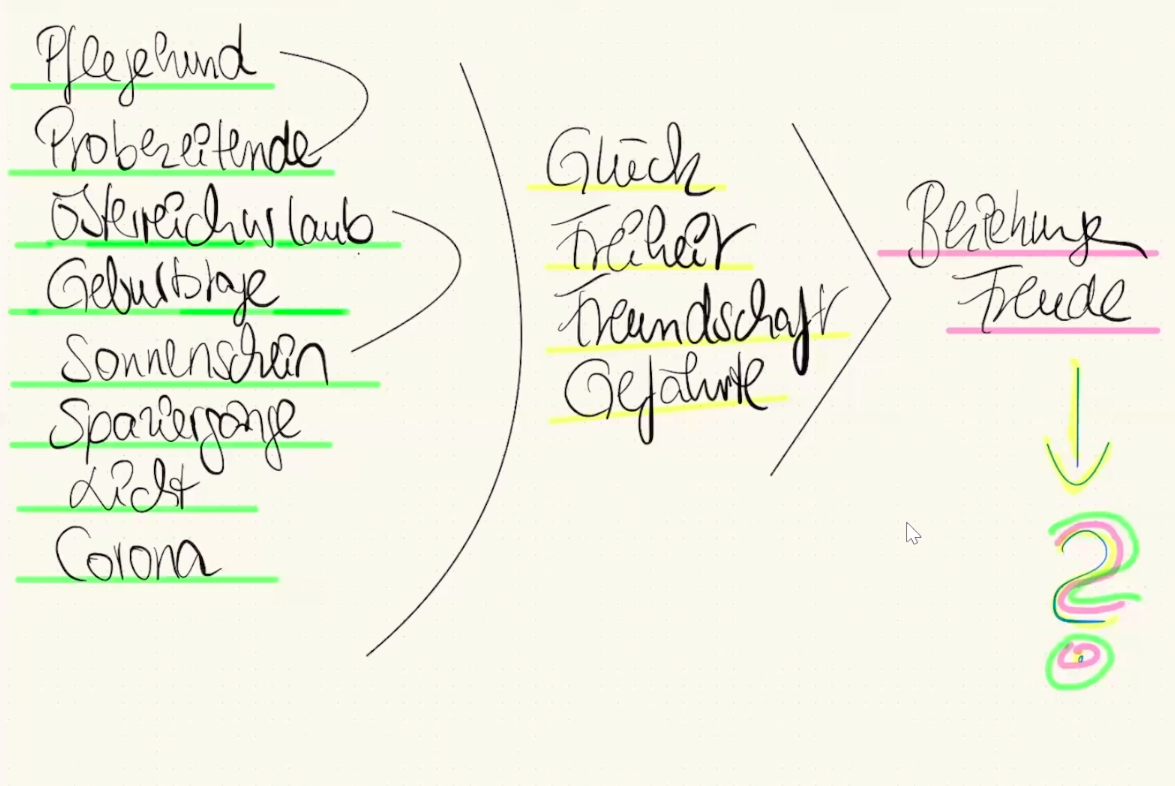 Pflegehund
Probezeitende
Österreichurlaub
Geburtstage
Sonnenschein
Spaziergänge
Licht
Corona
Glück
Freiheit
Freundschaft
Gefährte
Beziehung
Freude
?